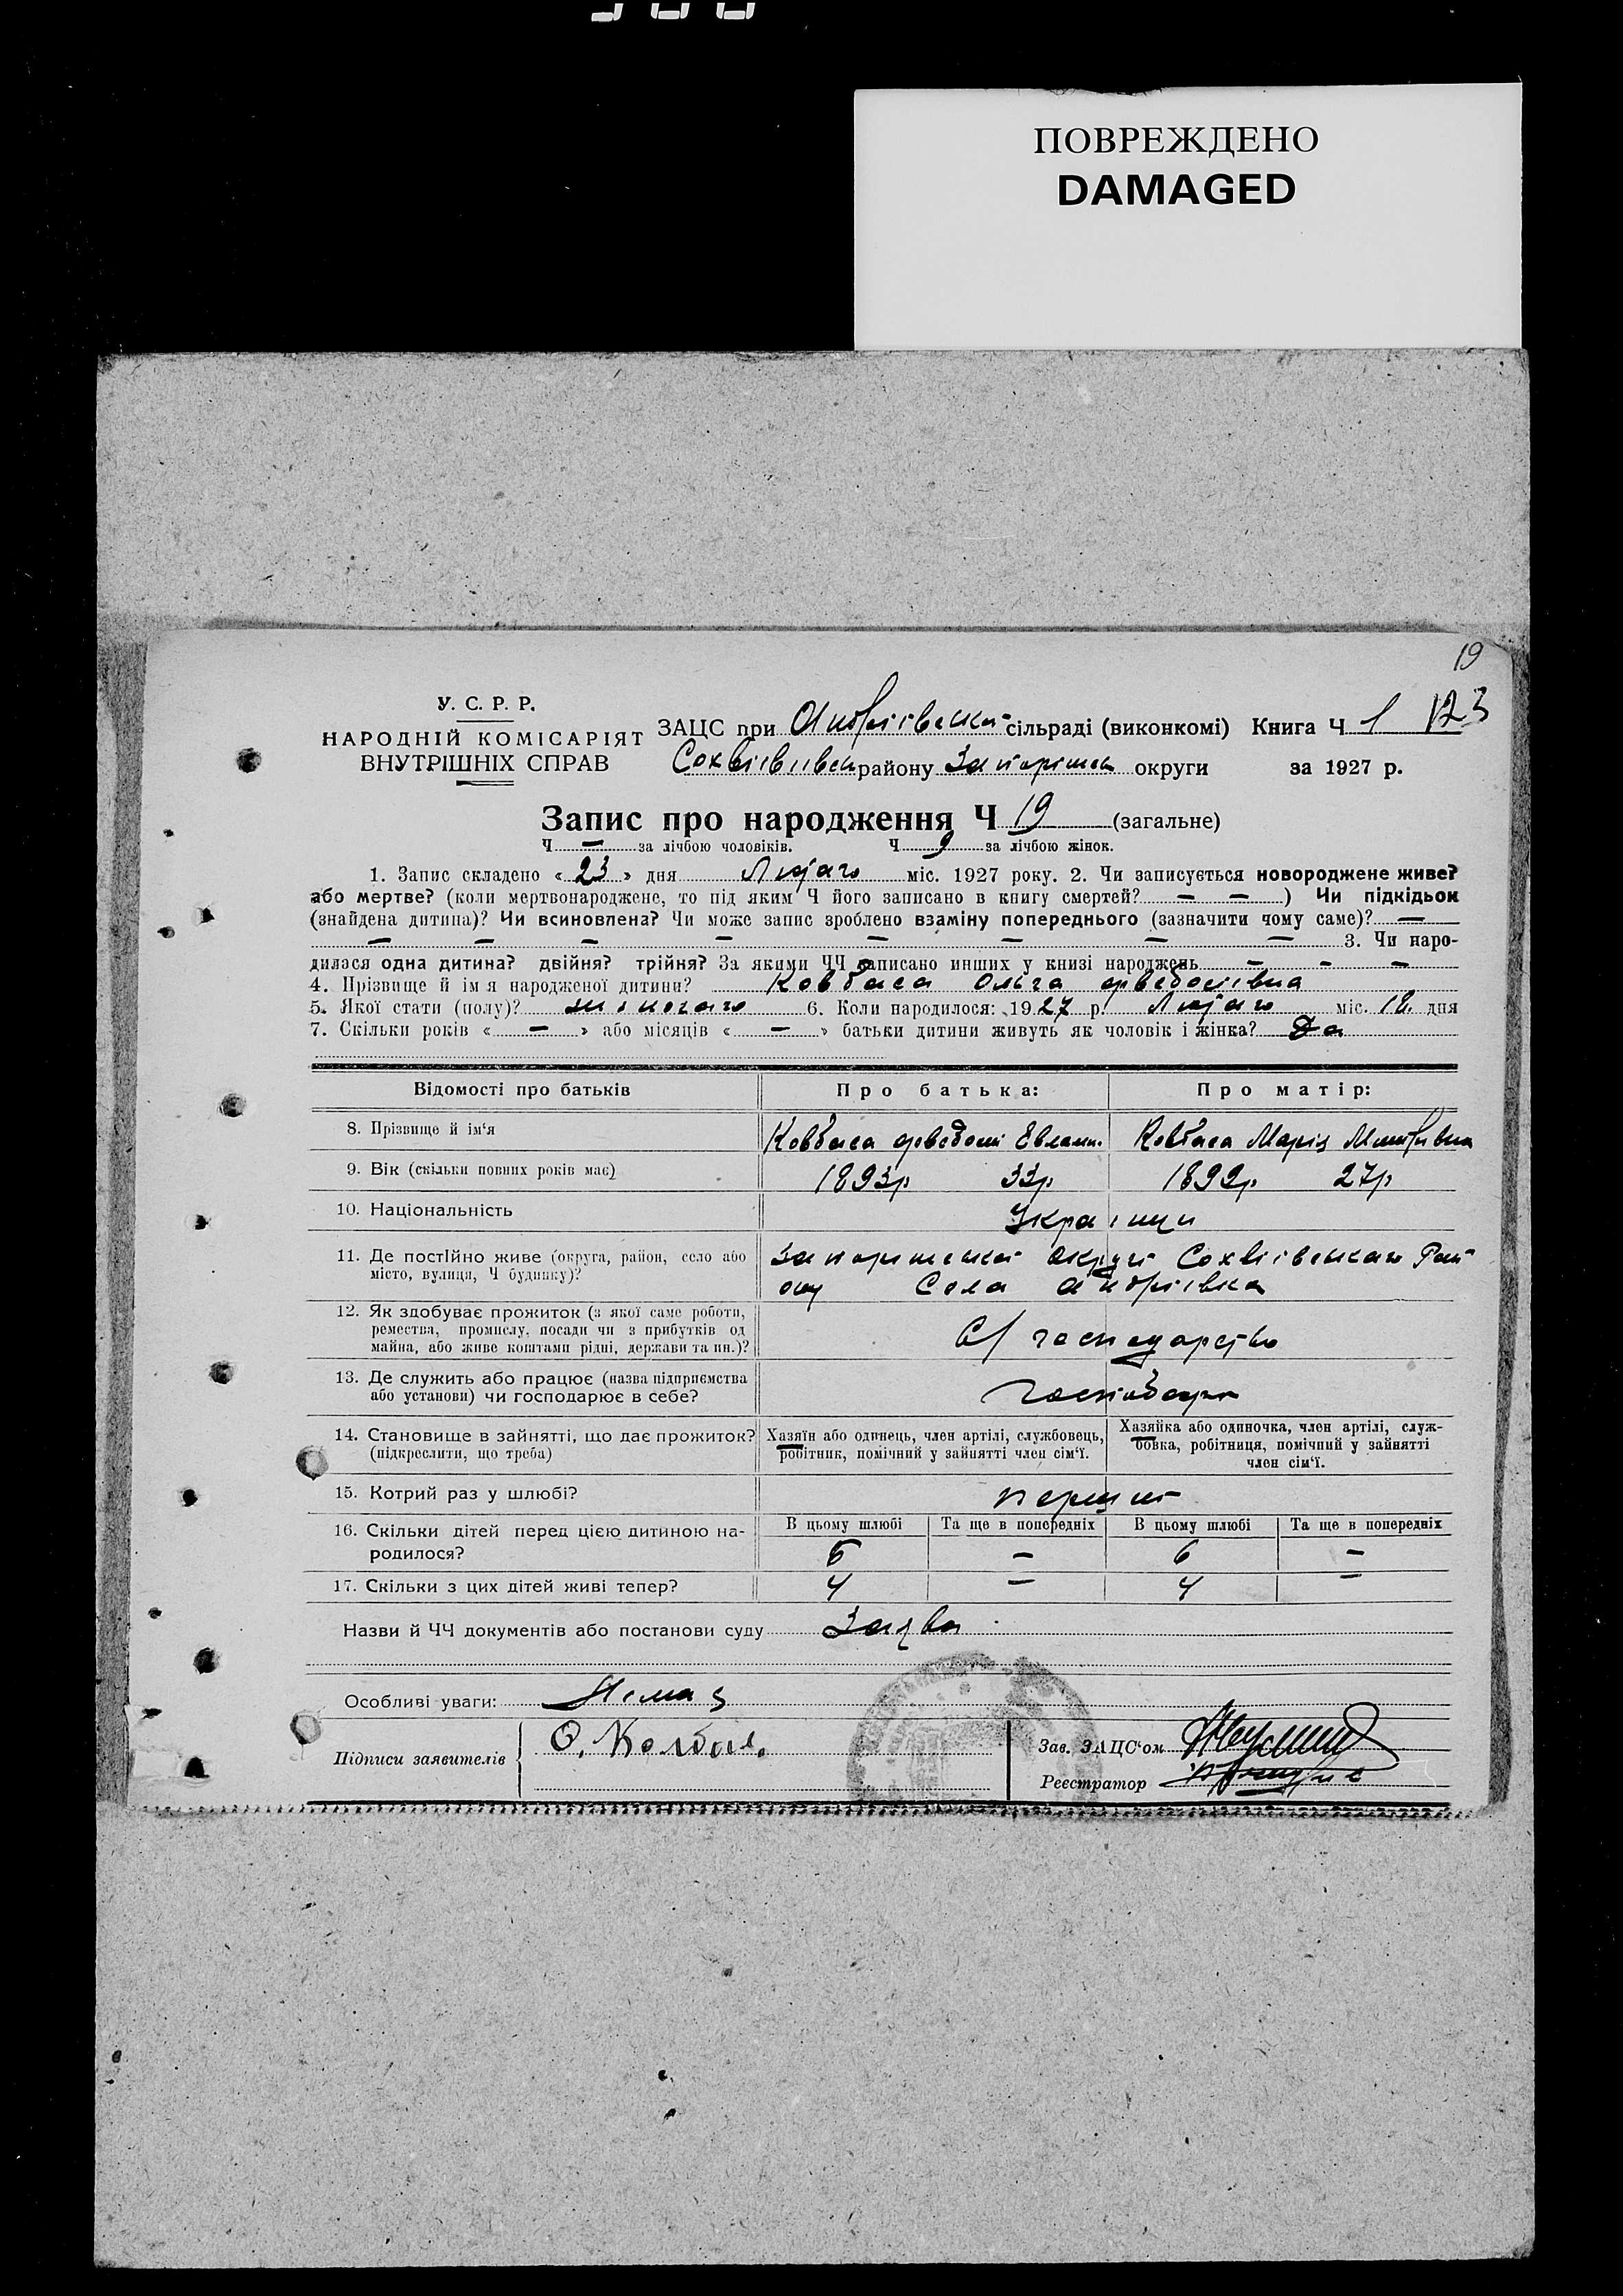 ПОВРЕЖДЕНО
DAMAGED
19
У. С. Р. Р.
НАРОДНІЙ КОМІСАРІЯТ
ВНУТРІШНІХ СПРАВ
ЗАЦС при Андріівській сільраді (виконкомі) Книга Ч 1 123
району Запоріжськ округи за 1927 р.
Запис про народження Ч 19 (загальне)
Ч — за лічбою чоловіків. Ч 9 за лічбою жінок.
1. Запис складено « 23 » дня Лютаго міс. 1927 року. 2. Чи записується новороджене живе?
або мертве? (коли мертвонароджене, то під яким Ч його записано в книгу смертей? — — ) Чи підкідьок
(знайдена дитина)? Чи всиновлена? Чи може запис зроблено взаміну попереднього (зазначити чому саме)? —
— — — — — — — — 3. Чи наро-
дилася одна дитина? двійня? трійня? За якими ЧЧ записано инших у книзі народжень — - —
4. Прізвище й ім я народженої дитини? Ковбаса Ольга Февдосіівна
5. Якої стати (полу)? жіночаго 6. Коли народилося: 1927 р. Лютаго міс. 18. дня
7. Скільки років « — » або місяців « — » батьки дитини живуть як чоловік і жінка? Да
Відомості про батьків Про батька: Про матір:
8. Прізвище й ім‘я Ковбаса Февдосій Евламп. Ковбаса Марія
9. Вік (скільки повних років має) 1893р 33р 1899р 27р
10. Національність Украінци
11. Де постійно живе (округа, район, село або Запоріжської округи Рай
місто, вулиця, Ч будинку)? ону Села Андріівка
12. Як здобуває прожиток (з якої саме роботи,
ремества, промислу, посади чи з прибутків од
майна, або живе коштами рідні, держави та ин.)? С/ господарство
13. Де служить або працює (назва підприємства
або установи) чи господарює в себе?
14. Становище в зайнятті, що дає прожиток? Хазяїн або одинець, член артілі, службовець, Хазяйка або одиночка, член артілі, служ-
(підкреслити, що треба) робітник, помічний у зайнятті член сім‘ї. бовка, робітниця, помічний у зайнятті
член сім‘ї.
15. Котрий раз у шлюбі? перший
16. Скільки дітей перед цією дитиною на- В цьому шлюбі Та ще в попередніх В цьому шлюбі Та ще в попередніх
родилося? — 6 —
17. Скільки з цих дітей живі тепер? 4 — 4 —
Назви й ЧЧ документів або постанови суду Заява
Особливі уваги: Немає
Підписи заявителів
Зав. ЗАЦС‘ом
Реєстратор